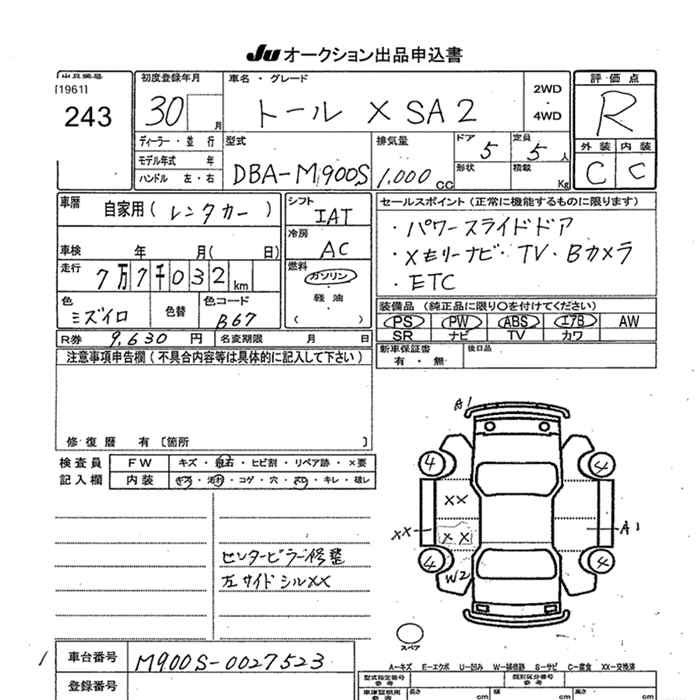 Ju オークション出品申込書
出品番号 初度登録年月 車名・グレード 評価点
[1961]
243 30 月 トール X SA2 2WD ・ 4WD R
外装 内装
C C
ディーラー・並行 型式 排気量 ドア 定員
モデル年式 年 5 5人
ハンドル 左・右 DBA-M900S 1,000cc 形状 積載 Kg
車歴 自家用(レンタカー) シフト IAT
セールスポイント(正常に機能するものに限ります)
・パワースライドドア
・メモリーナビ・TV・Bカメラ
・ETC
車検 年 月( 日) 冷房 AC
走行 7万7千032km 燃料 ガソリン
軽油
( )
色 ミズイロ 色替 色コード B67
装備品(純正品に限り○を付けてください)
PS PW ABS エアB AW
SR ナビ TV カワ
R券 9,630円 名変期限 月 日
新車保証書 後日品
有・無
注意事項申告欄(不具合内容等は具体的に記入して下さい)
修復歴 有〔箇所 〕
検査員 FW キズ・飛石・ヒビ割・リペア跡・×要
記入欄 内装 キズ・汚れ・コゲ・穴・スレ・キレ・破レ
A1
4 4
XX
XX XX A1
4 4
W2
センターピラー修整
左サイドシルXX
スペア
車台番号 M900S-0027523
登録番号
A-キズ E-エクボ U-凹み W-補修跡 S-サビ C-腐食 XX-交換済
型式指定番号 類別区分番号
長さ cm 幅 cm 高さ cm